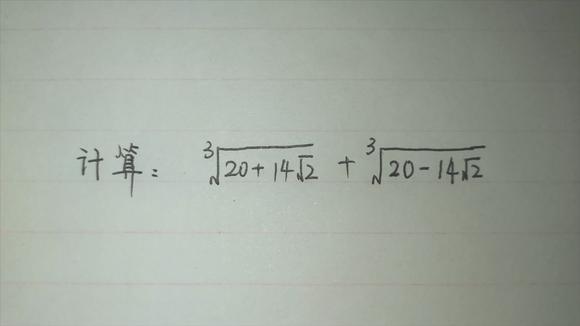 计算: ∛(20+14√2) + ∛(20-14√2)